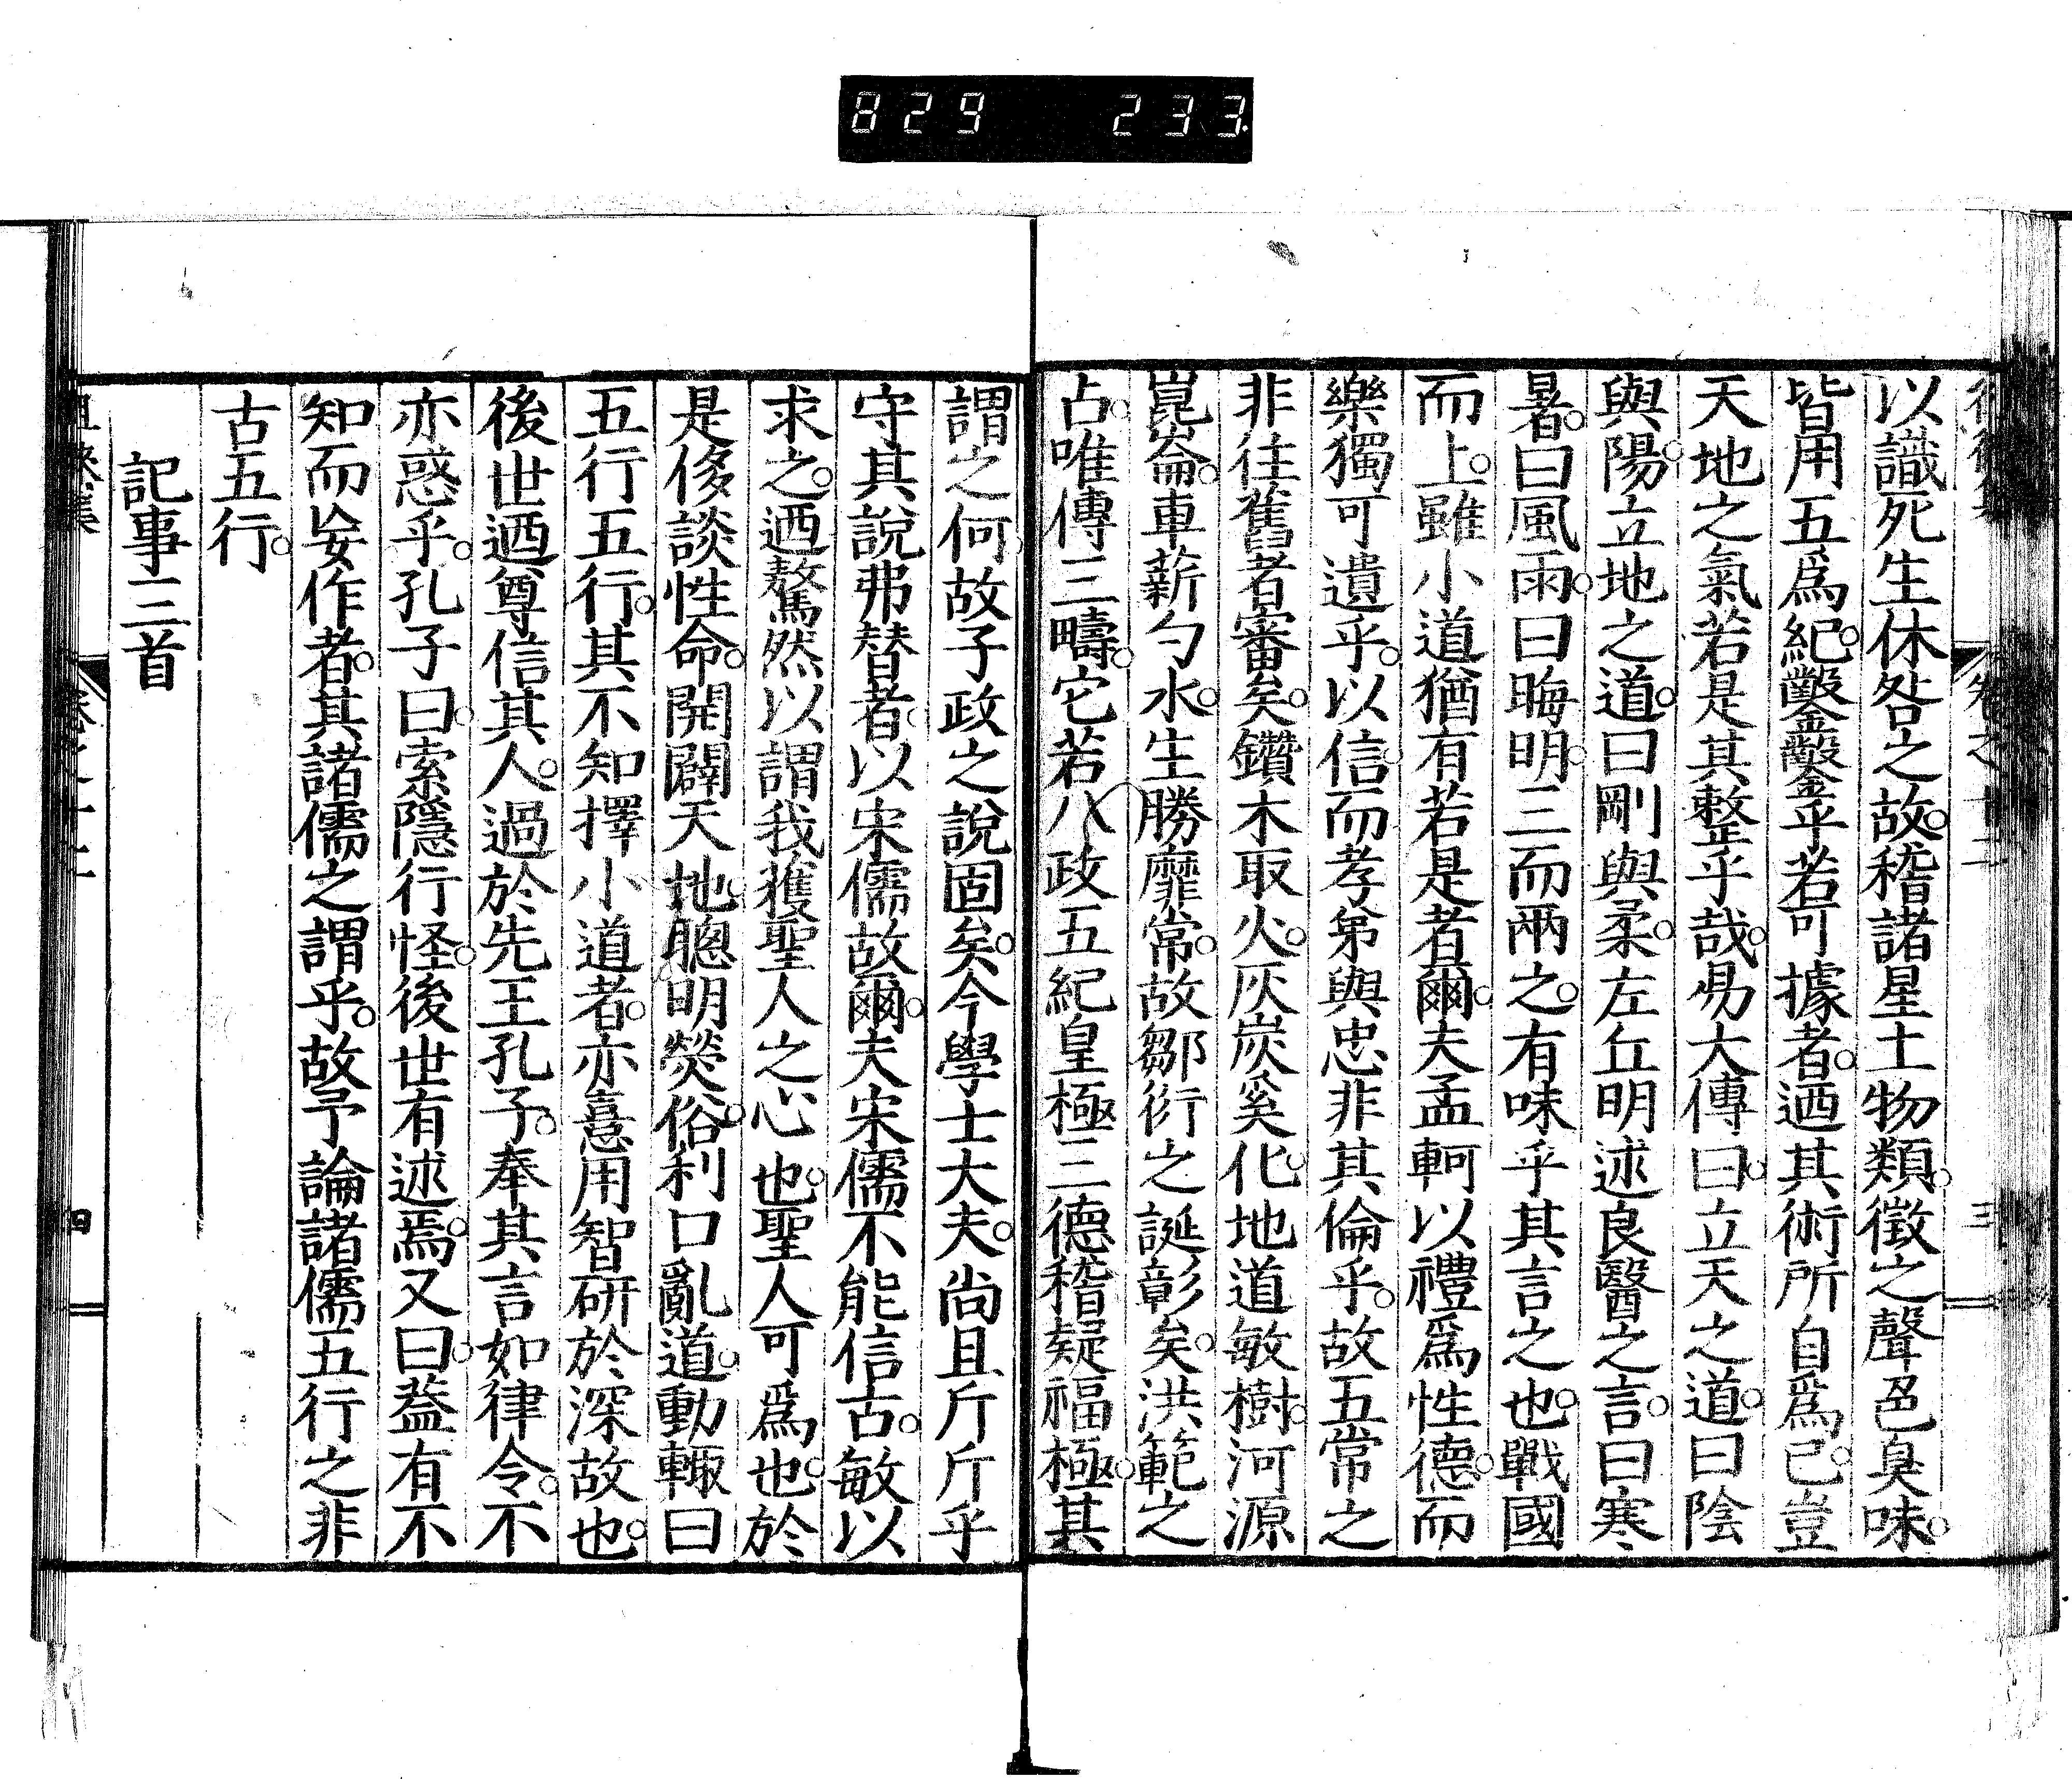 829 233
以識死生休咎之故。稽諸星土物類。徵之聲色臭味。
皆用五爲紀。鑿鑿乎若可據者。迺其術所自爲已。豈
天地之氣若是其整乎哉。易大傳曰。立天之道。曰陰
與陽。立地之道。曰剛與柔。左丘明述良醫之言。曰寒
暑。曰風雨。曰晦明。三而兩之。有味乎其言之也。戰國
而上。雖小道猶有若是者爾。夫孟軻以禮爲性德。而
樂獨可遺乎。以信。而孝弟與忠非其倫乎。故五常之
非徃舊者審矣。鑽木取火。灰炭奚化。地道敏樹。河源
崑崙。車薪勺水。生勝靡常。故鄒衍之誕彰矣。洪範之
占。唯傳三疇。它若八政五紀皇極三德稽疑福極。其
謂之何。故子政之說固矣。今學士大夫。尚且斤斤乎
守其說弗替者。以宋儒故爾。夫宋儒不能信古。敏以
求之。迺驁然以謂我獲聖人之心也。聖人可爲也。於
是侈談性命。開闢天地。聰明熒俗。利口亂道。動輙曰
五行五行。其不知擇小道者。亦憙用智研於深故也。
後世迺尊信其人。過於先王孔子。奉其言如律令。不
亦惑乎。孔子曰。索隱行怪。後世有述焉。又曰。蓋有不
知而妄作者。其諸儒之謂乎。故予論諸儒五行之非
古五行。
記事三首
徂徠集
卷之十二
三
四